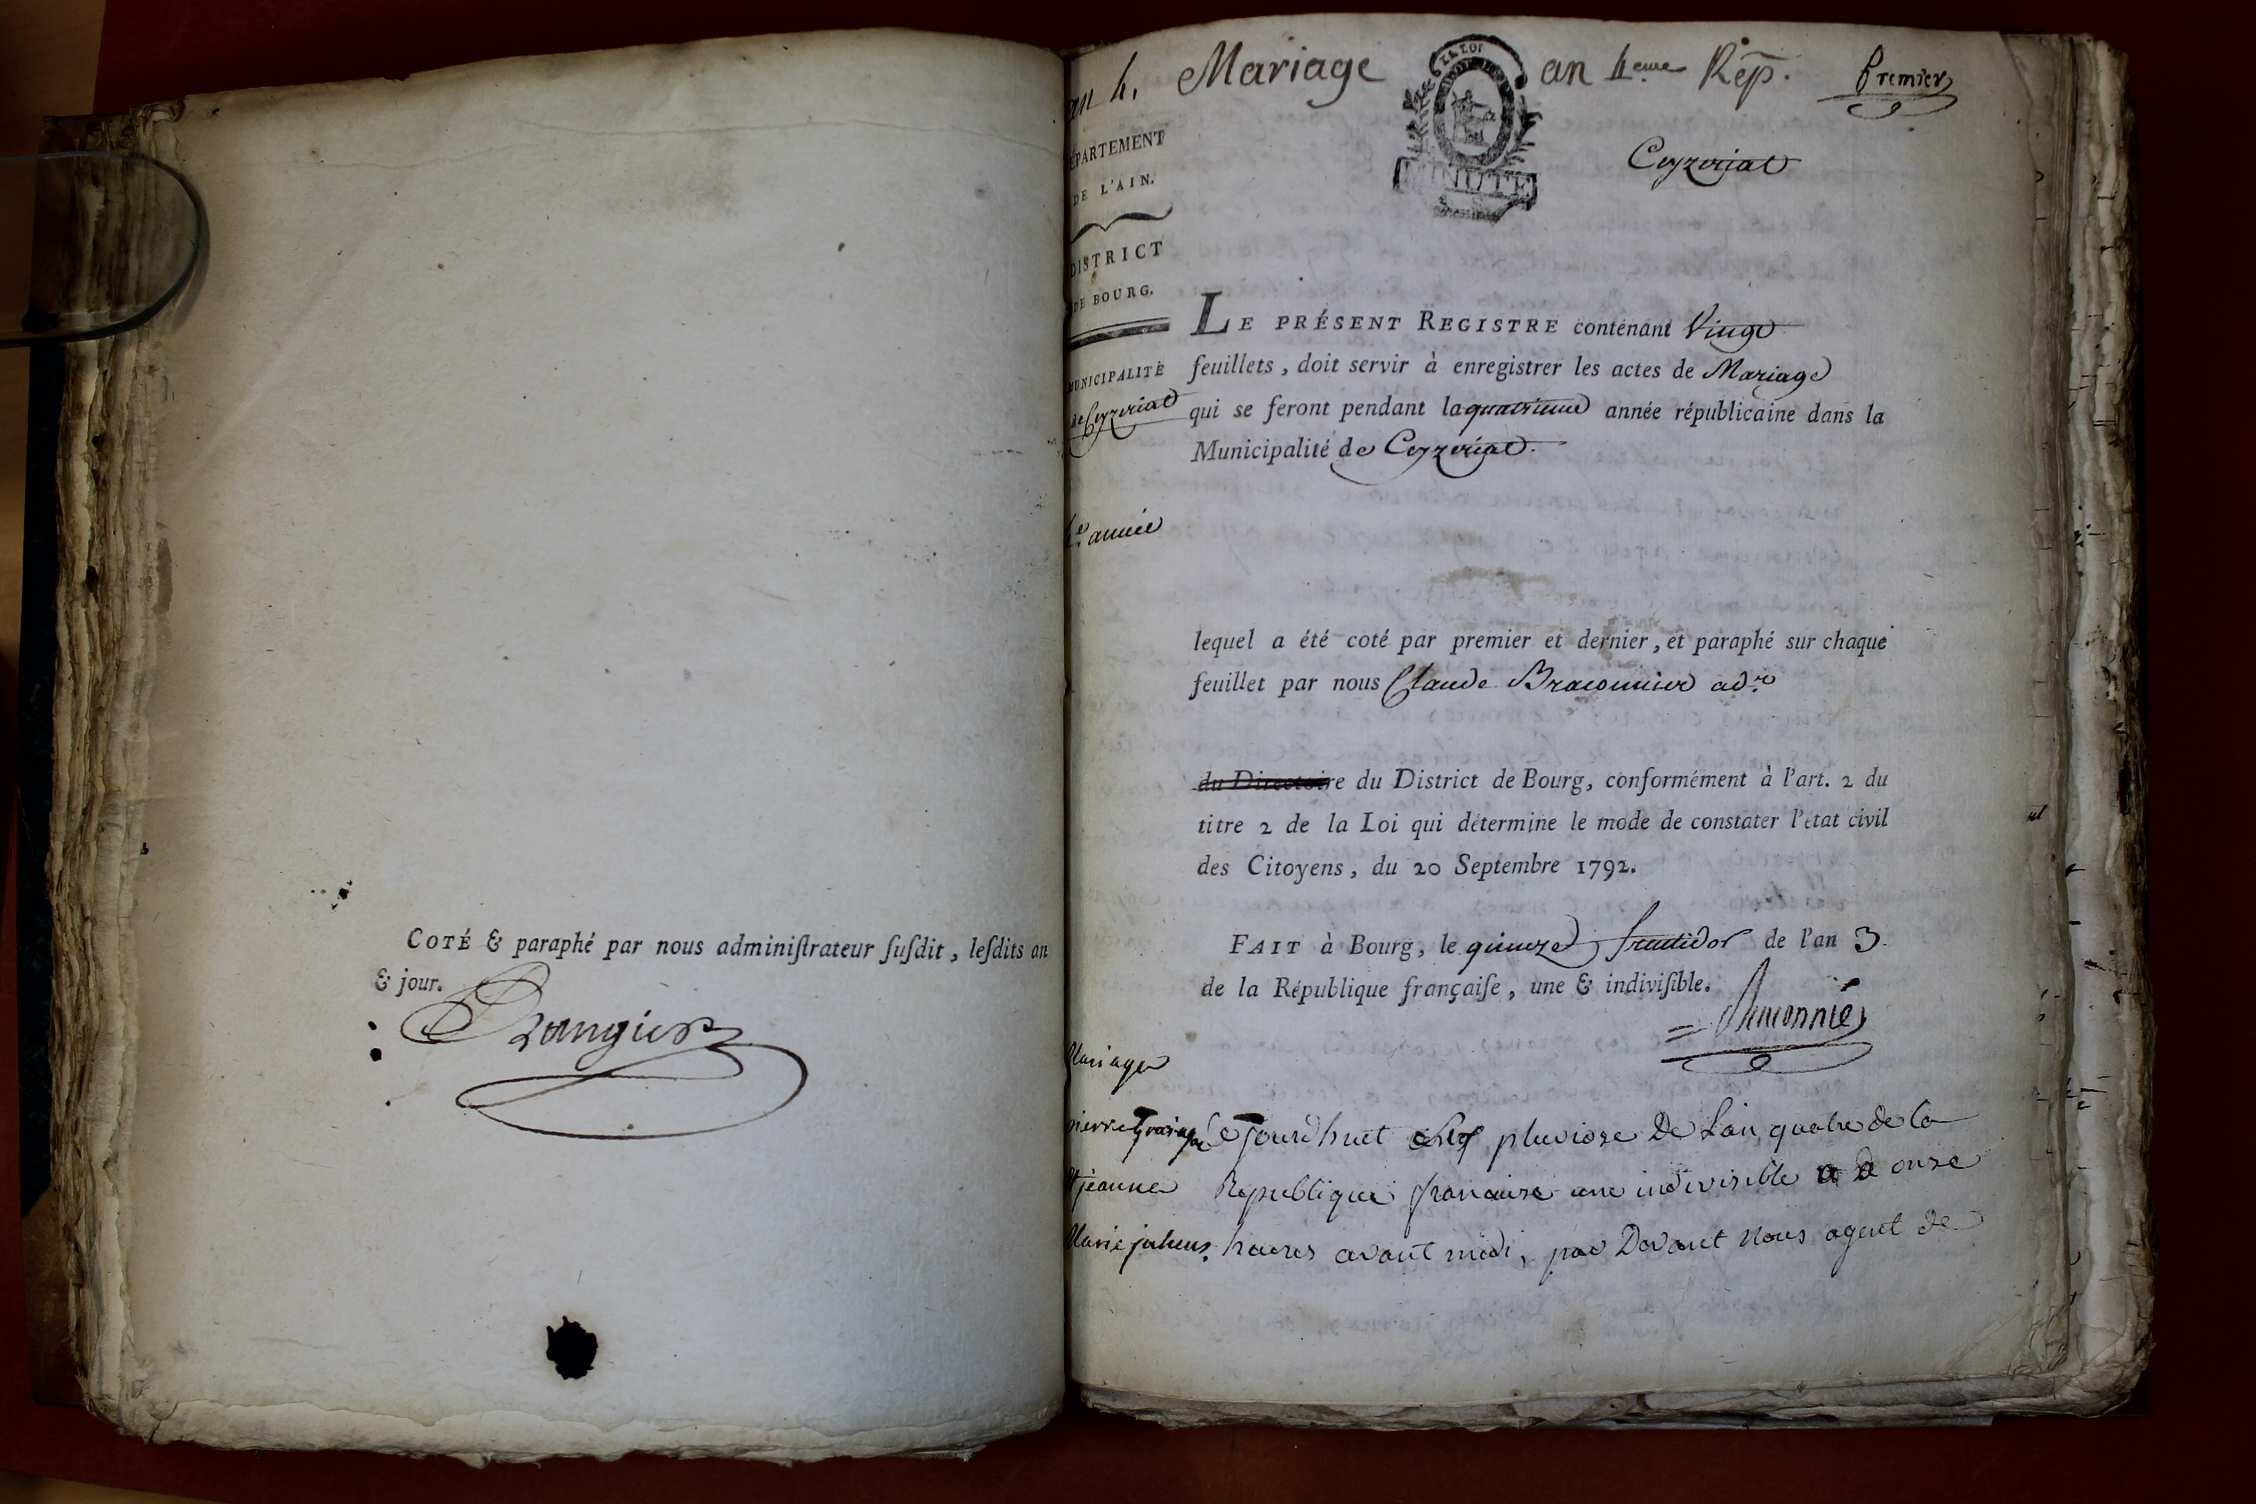 COTÉ & paraphé par nous adminiſtrateur ſuſdit, leſdits an
& jour.
an 4.
Mariage
LA LOI
an 4eme Rép.
Premier
MINUTE
Ceyzeriat
DÉPARTEMENT
DE L'AIN.
DISTRICT
DE BOURG.
MUNICIPALITÉ
de Ceyzeriat
LE PRÉSENT REGISTRE contenant Vingt
feuillets, doit servir à enregistrer les actes de Mariage
qui se feront pendant la quatrieme année républicaine dans la
Municipalité de Ceyzeriat.
4e. année
lequel a été coté par premier et dernier, et paraphé sur chaque
feuillet par nous Claude Braconnier adr
du Directoire du District de Bourg, conformément à l'art. 2 du
titre 2 de la Loi qui détermine le mode de constater l'état civil
des Citoyens, du 20 Septembre 1792.
FAIT à Bourg, le quinze fructidor de l'an 3
de la République françaiſe, une & indiviſible.
Braconnier
Mariage
pierre
Et jeanne
Marie
Ce Jourdhuit pluviose De Lan quatre de la
Republique francaise une indivisible a onze
heures avant midi, par Devant Nous agent de